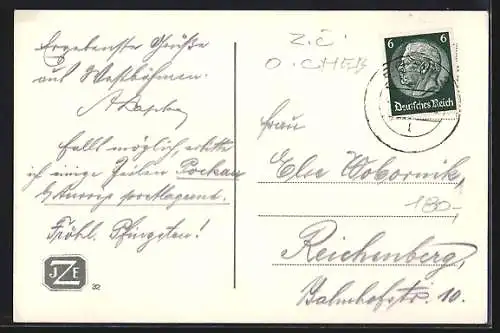 Ergebenste Grüße
aus Westböhmen.
Falls möglich, erbitte
ich einige Zeilen Pockau
postlagernd.
Fröhl. Pfingsten!
JZE
32
Z.Č.
O. CHEB
6 6
Deutsches Reich
Frau
Else Wobornik,
180-
Reichenberg,
Bahnhofstr. 10.